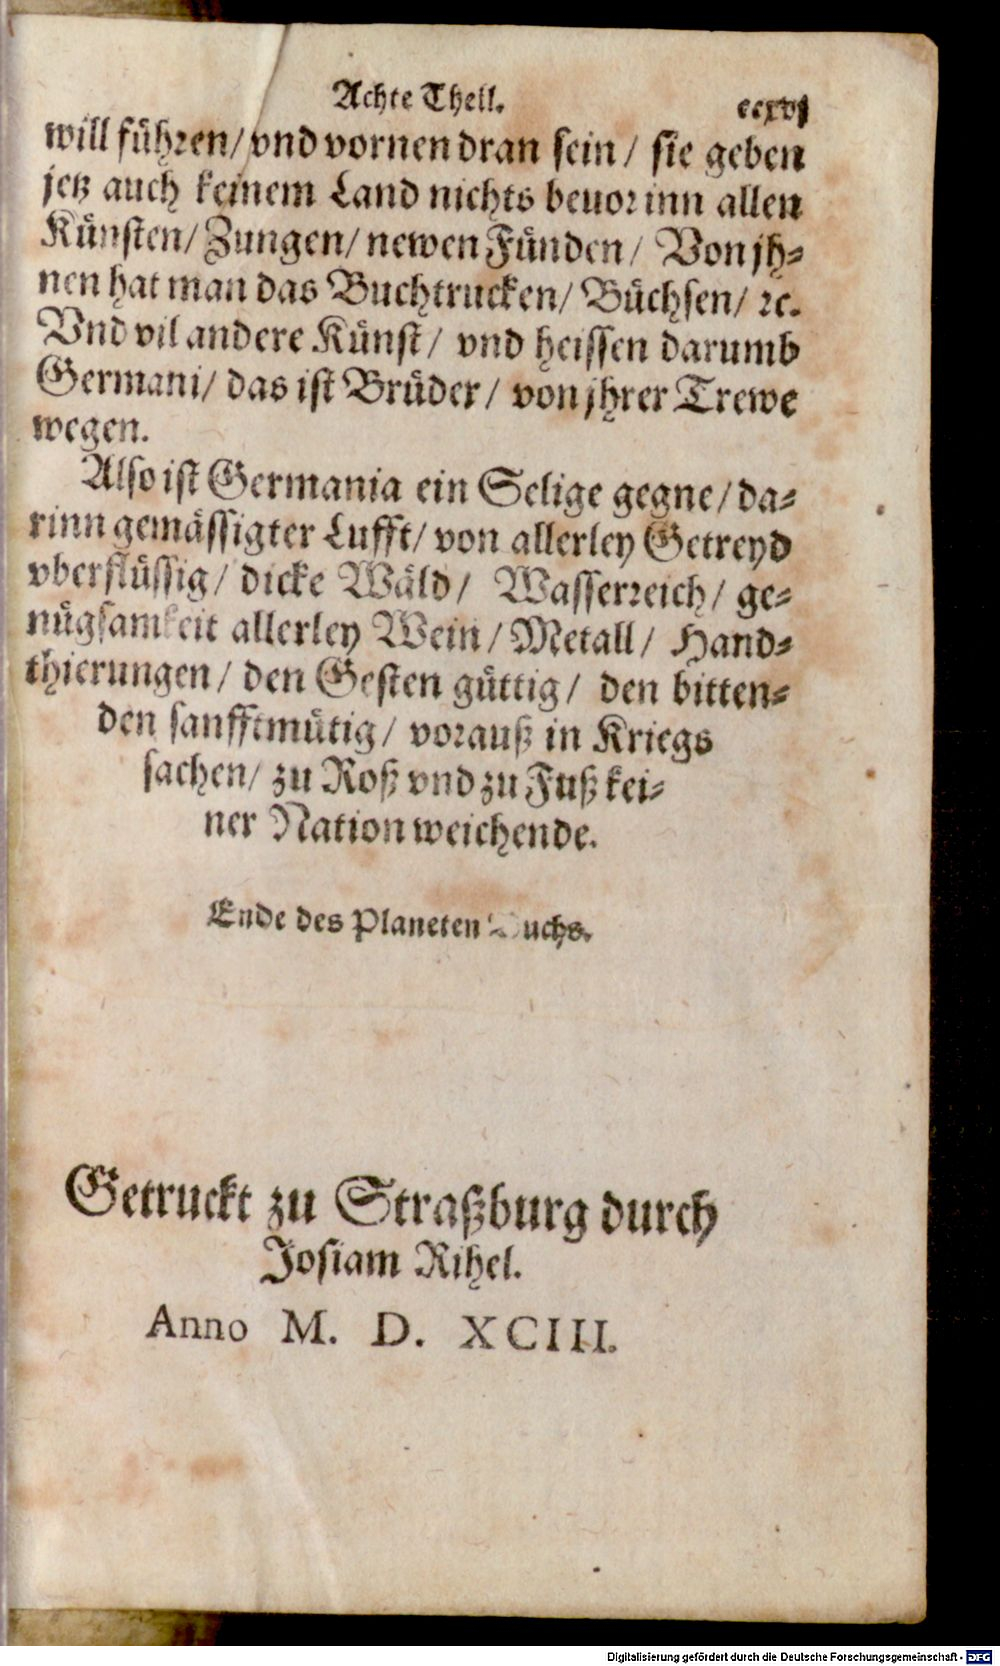 Achte Theil. ccxvj
will führen/ vnd vornen dran sein/ sie geben
jetz auch keinem Land nichts beuor inn allen
Künsten/ Zungen/ newen Fünden/ Von jh-
nen hat man das Buchtrucken/ Büchsen/ ꝛc.
Vnd vil andere Künst/ vnd heissen darumb
Germani/ das ist Brüder/ von jhrer Trewe
wegen.
Also ist Germania ein Selige gegne/ da-
rinn gemässigter Lufft/ von allerley Getreyd
vberflüssig/ dicke Wäld/ Wasserreich/ ge-
nügsamkeit allerley Wein/ Metall/ Hand-
thierungen/ den Gesten güttig/ den bitten-
den sanfftmütig/ vorauß in Kriegs
sachen/ zu Roß vnd zu Fuß kei-
ner Nation weichende.
Ende des Planeten Buchs.
Getruckt zu Straßburg durch
Josiam Rihel.
Anno M. D. XCIII.
Digitalisierung gefördert durch die Deutsche Forschungsgemeinschaft - DFG